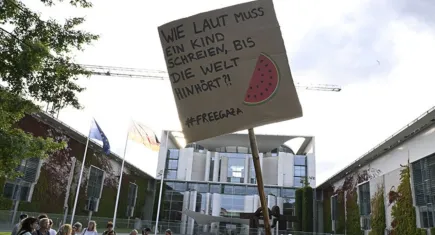 WIE LAUT MUSS
EIN KIND
SCHREIEN, BIS
DIE WELT
HINHÖRT?!
#FREEGAZA